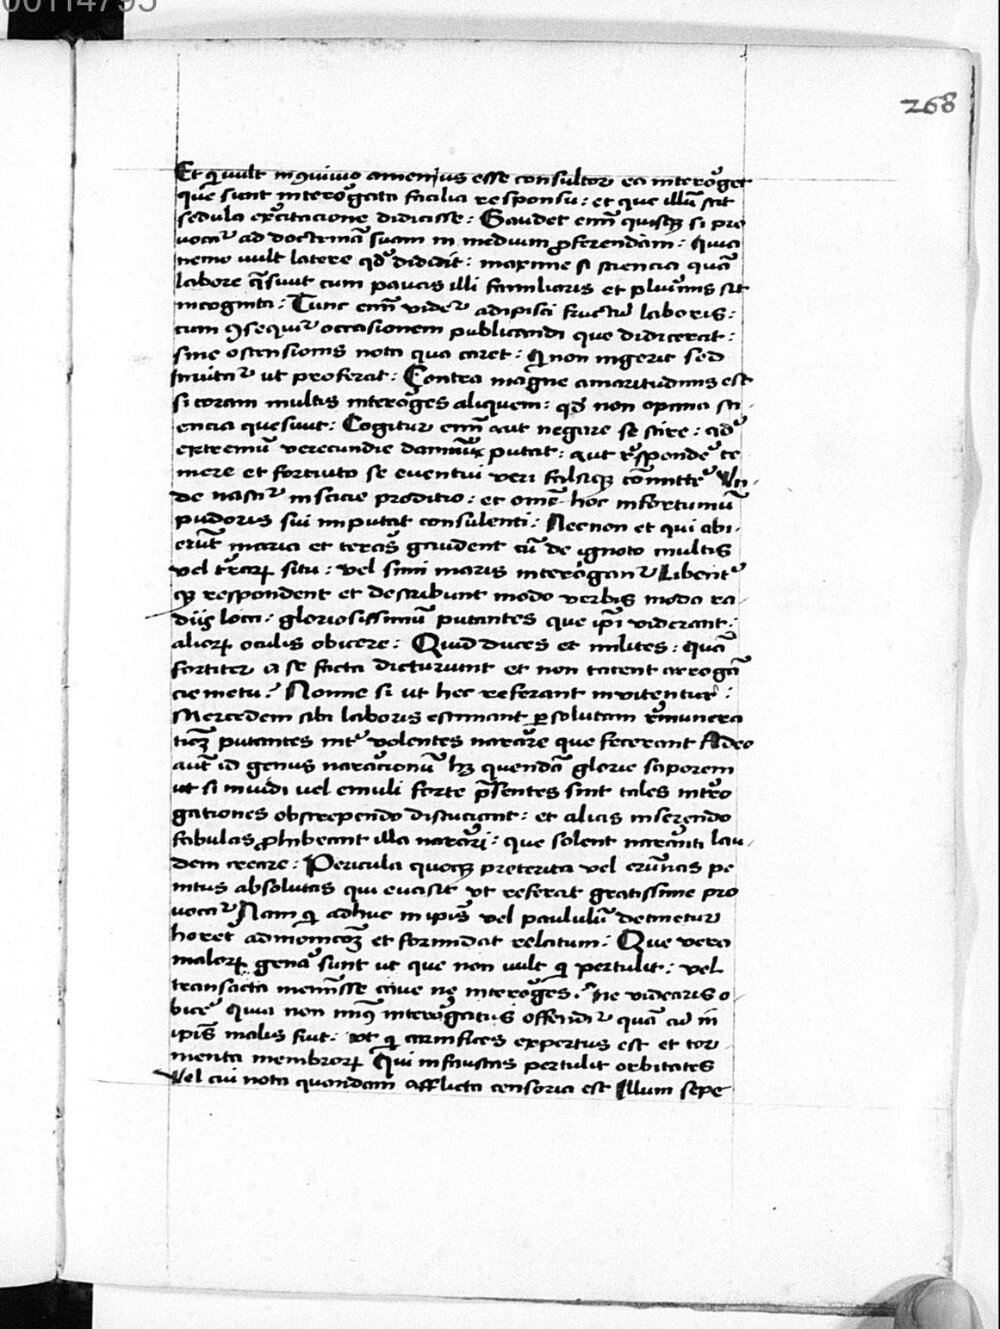 00114795
268
Et q̄ vult in ꝯviuio amenius esse consultor ea interoget
que sunt interogata facilia responsu: et que illū scit
sedula exͬcitacione didicisse: Gaudet em̄ quisqꝫ si pro
uocat᷑ ad doctrinā suam in medium ꝓferendam: Quia
nemo vult latere qd̓ didicit: maxime si sciencia quā
labore q̄siuit cum paucis illi familiaris et plurimis sit
incognita: Tunc em̄ videt᷑ adipisci fructū laboris:
cum ꝯsequit᷑ occasionem publicandi que didicerat:
sine ostensionis nota qua caret: q̄ non ingerit sed
inuitat᷑ ut proferat: Contra magne amaritudinis est
si coram multis interoges aliquem: qd̓ non opima sci
encia quesiuit: Cogitur em̄ aut negare se scire: qd̓
extremū verecundie damnū putat: aut rn̄sponde᷑ te
mere et fortuito se euentui veri falsiqꝫ cōmitte᷑ Vn
de nascit᷑ inscicie proditio: et omē hoc infortuniū
pudoris sui imputat consulenti: Necnon et qui obi
erūt maria et teras gaudent cū de ignoto multis
vel t᷑raꝝ situ: vel sinu maris interogant᷑ libent᷑
qꝫ respondent et describunt modo verbis modo ra
diis loca: gloriosissimū putantes que ip̄i viderant:
alioꝝ oculis obicere: Quid duces et milites: quā
fortiter a se facta dicturiunt et non tacent arrogā
cie metu? Nonne si ut hec referant inuitentur:
Mercedem sibi laboris estimant ꝑsolutam r᷑munera
tiōꝫ putantes int᷑ volentes narare que fecerant Adeo
aut̄ id genus naracionū hꝫ quendā glorie saporem
ut si inuidi vel emuli forte p̄sentes sint tales intro
gationes obstrependo discuciant: et alias inserendo
fabulas ꝓhibeant illa narari: que solent naranti lau
dem creare: Pericula quoqꝫ preterita vel erūnas pe
nitus absolutas qui euasit vt referat gratissime pro
uocat᷑ Nam q̄ adhuc in ipis̄ vel paululū detinetur
horet admonicōꝫ et formidat relatum: Que vero
maloꝝ gena᷑ sunt ut que non vult q̄ pertulit: vel
transacta memīsse caue ne interoges. ne videaris o
bice᷑ Quia non min᷒ interogatus offendit᷑ quā cū in
ipis̄ malis fuit: vt q̄ carnifices expertus est et tor
menta membroꝝ Qui infaustas pertulit orbitates
Vel cui nota quondam afflicta censoria est Illum sepe